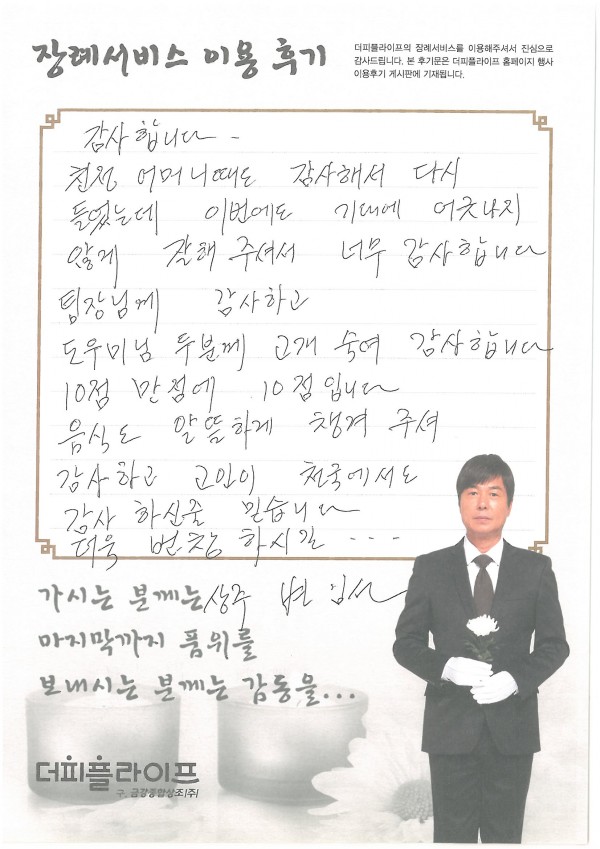 장례서비스 이용 후기
더피플라이프의 장례서비스를 이용해주셔서 진심으로
감사드립니다. 본 후기문은 더피플라이프 홈페이지 행사
이용후기 게시판에 기재됩니다.
감사합니다-
친정 어머니때도 감사해서 다시
들었는데 이번에도 기대에 어긋나지
않게 잘해 주셔서 너무 감사합니다
팀장님께 감사하고
도우미님 두분께 고개 숙여 감사합니다
10점 만점에 10점입니다
음식도 알뜰하게 챙겨 주셔
감사하고 고인이 천국에서도
감사 하신줄 믿습니다
더욱 번창 하시길 ...
가시는 분께는 상주 변
마지막까지 품위를
보내시는 분께는 감동을...
더피플라이프
구. 금강종합상조(주)